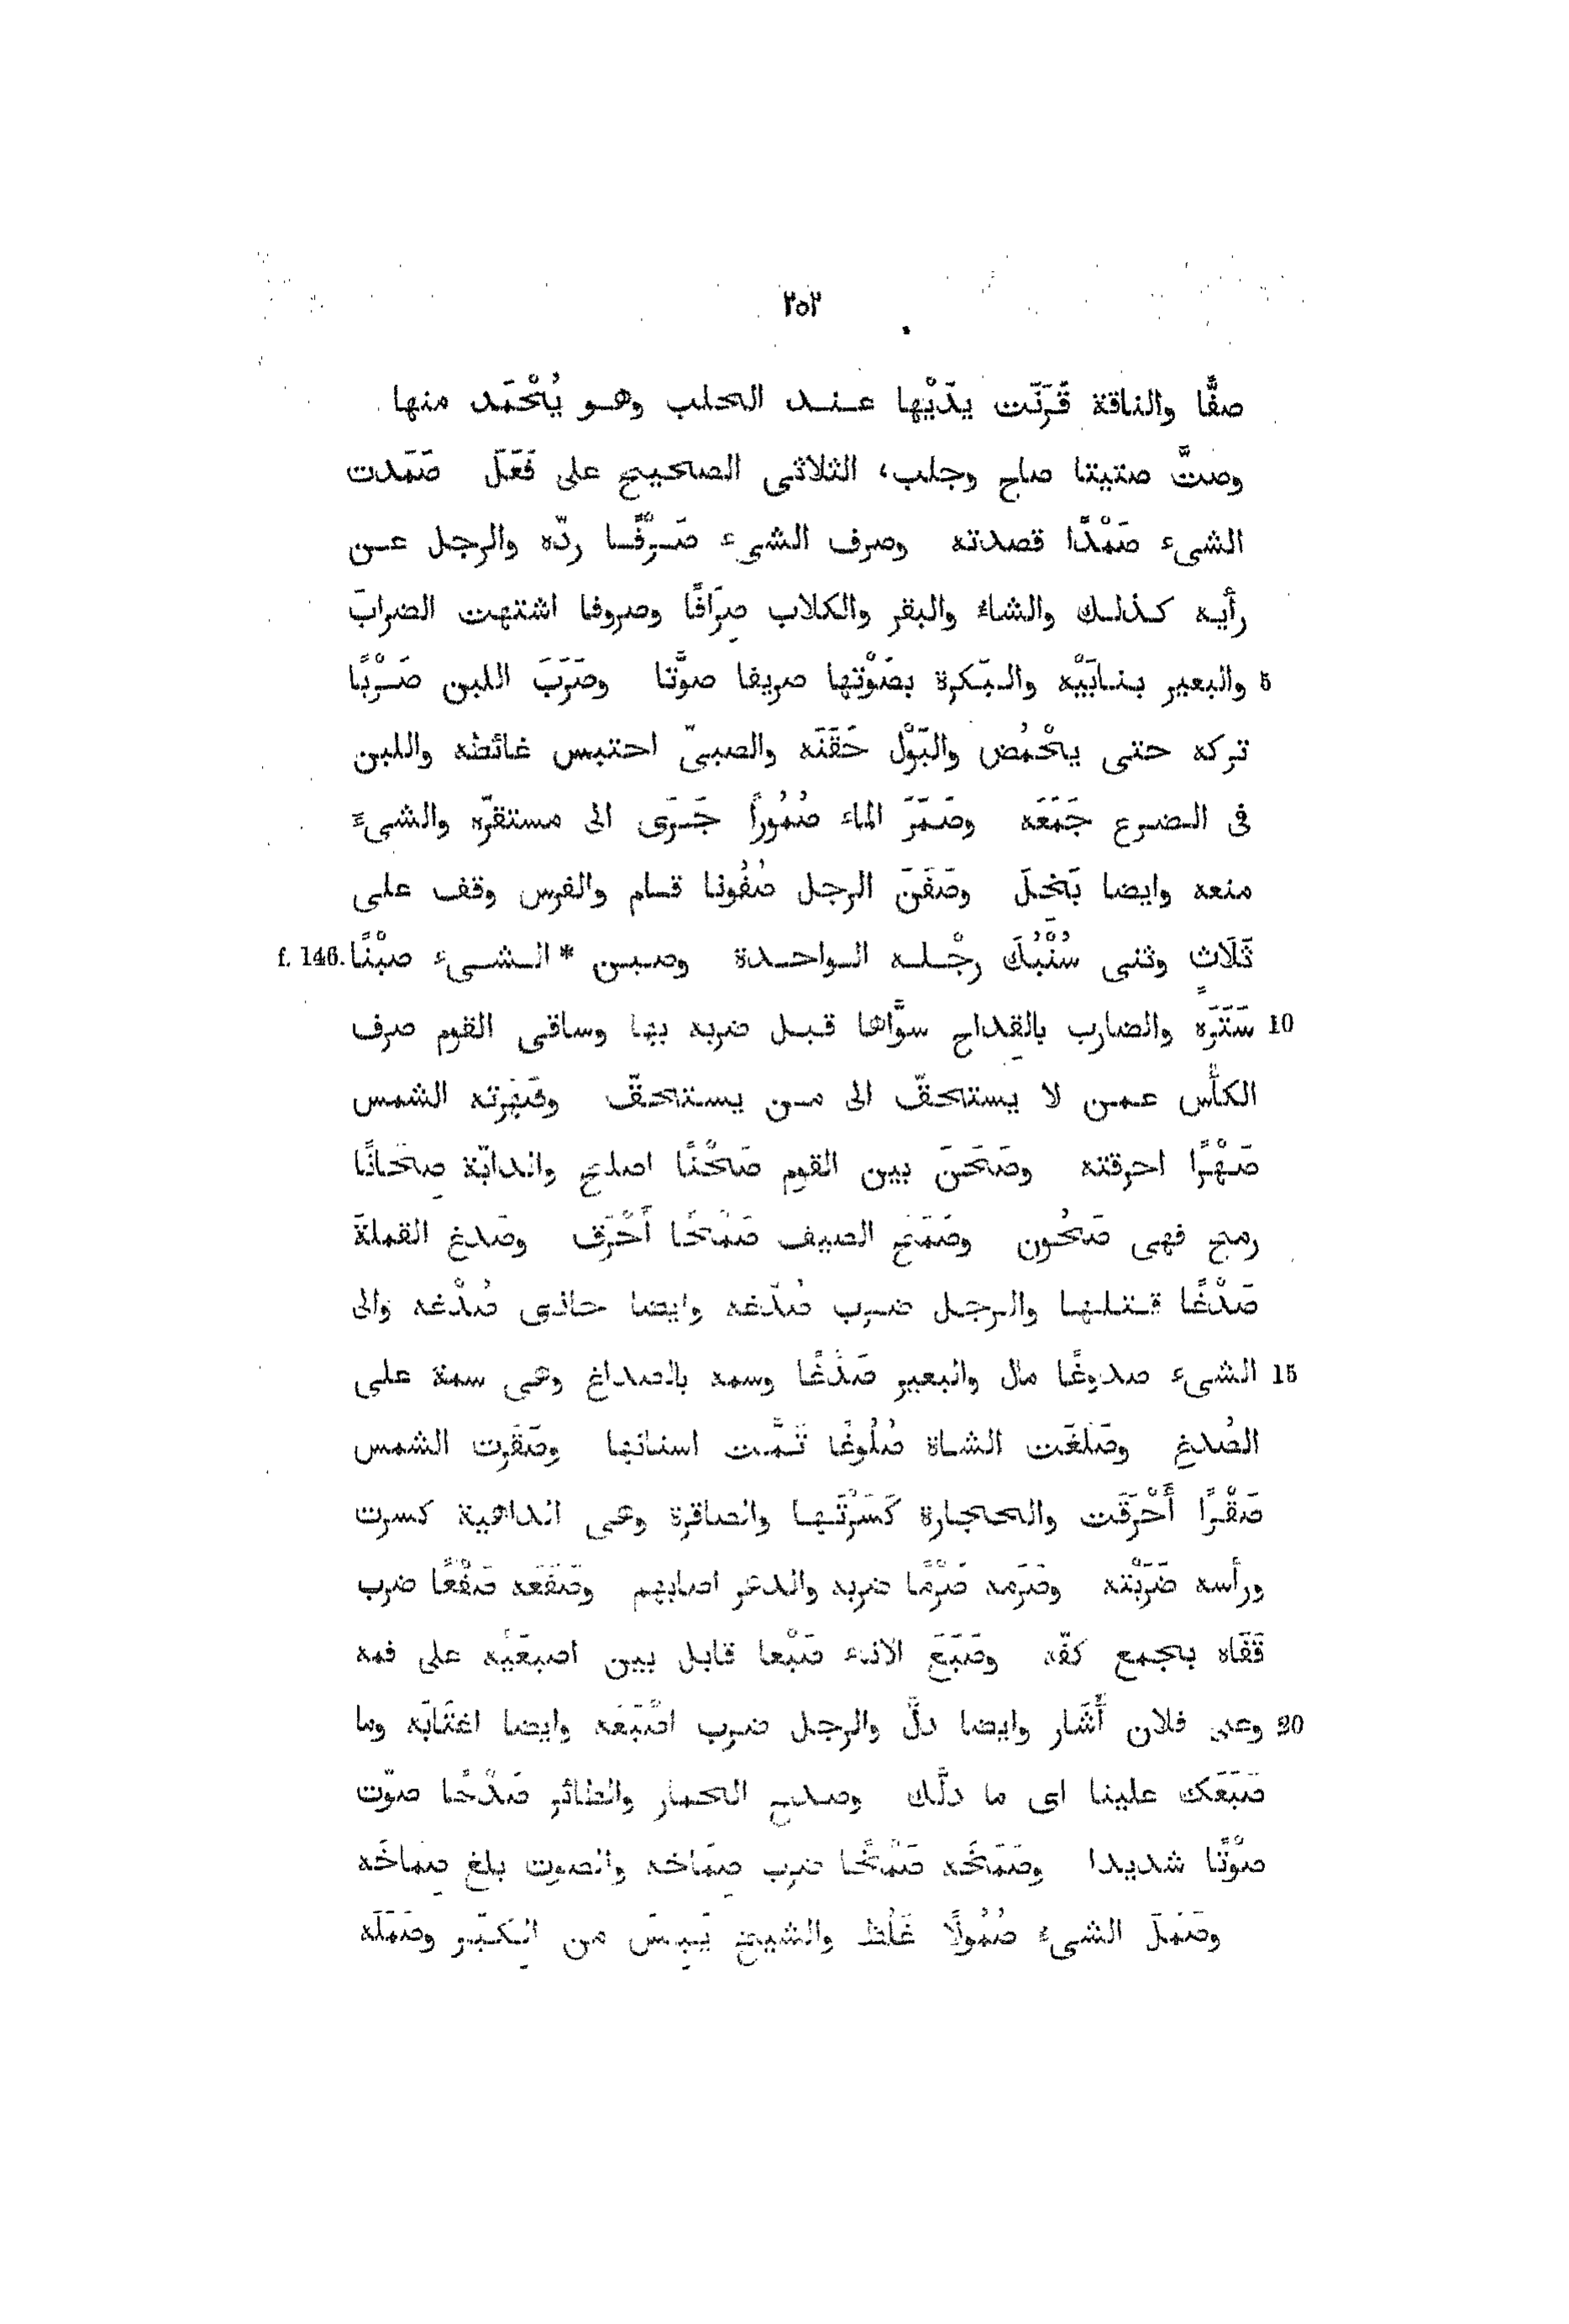 ٢٥٢
صفًّا والناقة قَرَنَت يدَيْها عند الحلب وهو يُحْمَد منها
وصتَّ صتيتا صاح وجلب، الثلاثى الصحيح على فَعَلَ صَمَدت
الشىء صَمْدًا قصدته وصرف الشىء صَرْفًا ردّه والرجل عن
رأيه كذلك والشاء والبقر والكلاب صِرَافًا وصروفا اشتهت الضرابَ
5 والبعير بنابَيْه والبَكرة بصَوْتها صريفا صوَّتا وصَرَبَ اللبن صَرْبًا
تركه حتى يحْمُض والبَوْل حَقَنَه والصبىّ احتبس غائطه واللبن
فى الضرع جَمَعَه وصَمَرَ الماء صُمُورًا جَرَى الى مستقرّه والشىءَ
منعه وايضا بَخِلَ وصَفَنَ الرجل صُفُونا قام والفرس وقف على
ثَلَاثٍ وثنى سُنْبُكَ رجْله الواحدة وصبن * الشىء صبْنًا f. 146.
10 سَتَرَه والضارب بالقِداح سوَّاها قبل ضربه بها وساقى القوم صرف
الكأْس عمن لا يستحقّ الى من يستحقّ وصَهَرته الشمس
صَهْرًا احرقته وصَحَنَ بين القوم صَحْنًا اصلح والدابّة صِحَانًا
رمح فهى صَحُون وصَمَحَ الصيف صَمْحًا أَحْرَق وصَدغ القملةَ
صَدْغًا قتلها والرجل ضرب صُدْغه وايضا حاذى صُدْغه والى
15 الشىء صدوغًا مال والبعير صَدْغًا وسمه بالصداغ وهى سمة على
الصُدغ وصَلَغَت الشاة صُلُوغًا تَمَّت اسنانها وصَقَرت الشمس
صَقْرًا أَحْرَقَت والحجارة كَسَرْتَها والصاقرة وهى الداهية كسرت
ورأسه ضَرَبْته وصَرَمه صَرْمًا ضربه والدهر اصابهم وصَفَعَه صَفْعًا ضرب
قَفَاه بجمع كفّه وصَبَعَ الاناء صَبْعا قابل بين اصبعَيْه على فمه
20 وعلى فلان أَشَار وايضا دلَّ والرجل ضرب اصْبَعَه وايضا اغتَابَه وما
صَبَعَك علينا اى ما دلَّك وصدح الحمار والطائر صَدْحًا صوّت
صوْتًا شديدا وصَمَخَه صَمْخًا ضرب صِمَاخه والصوت بلغ صِماخَه
وصَمَلَ الشىء صُمُولًا غَلُظ والشيخ يَبِسَ من الكِبَر وصَمَلَه